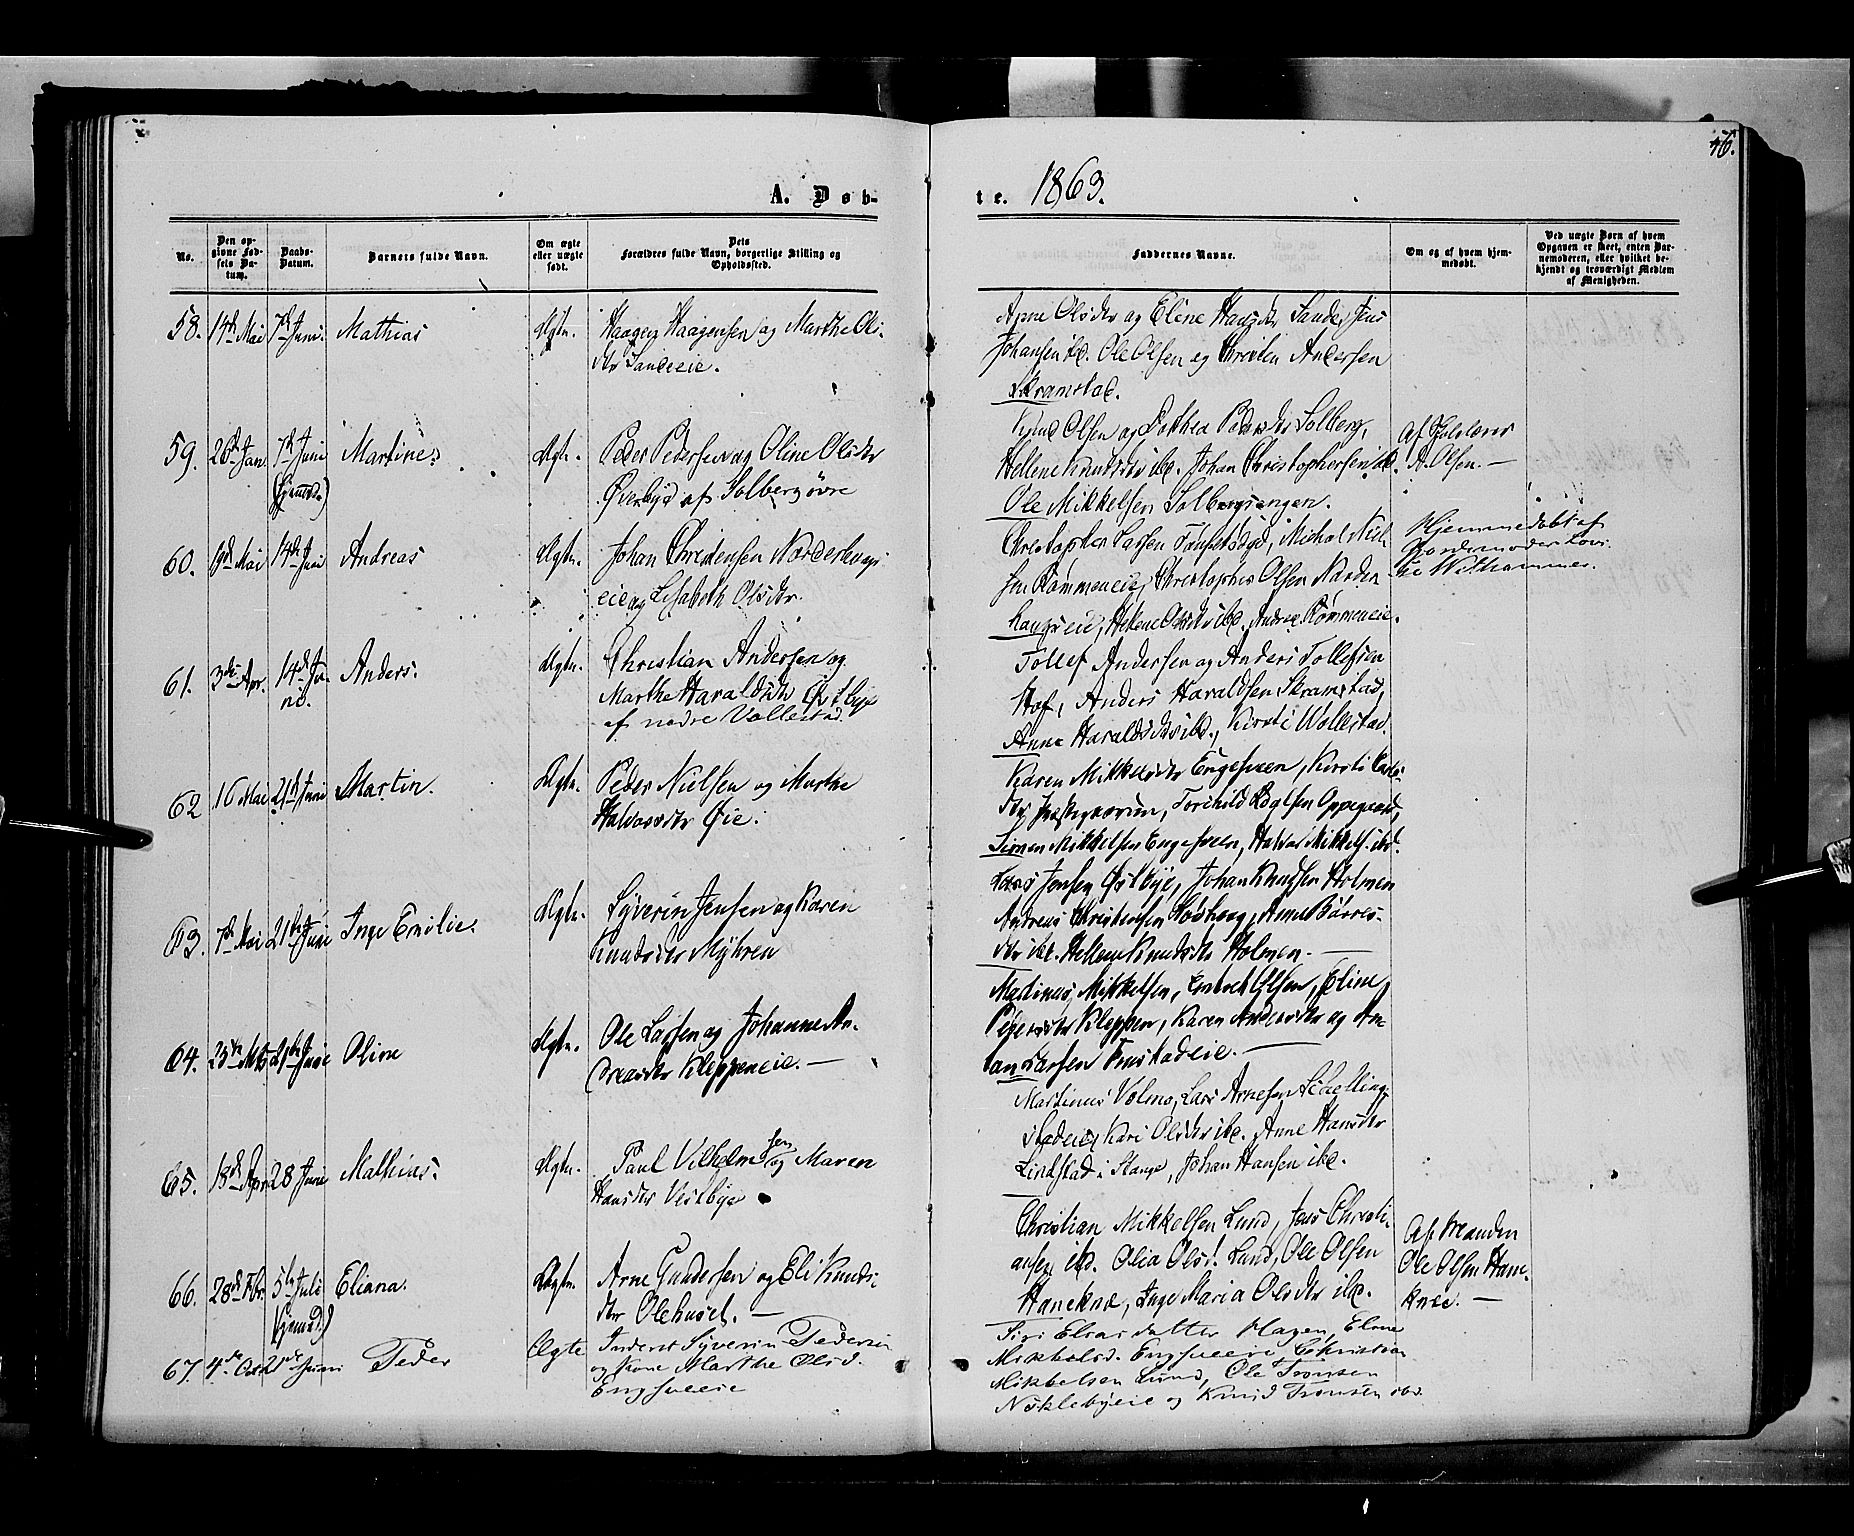 46.
A. Døb-
te. 1863.
No.
Den op-
givne Fød-
sels Da-
tum.
Daabs-
Datum.
Barnets fulde Navn.
Om ægte
eller uægte
født.
Dets
Forældres fulde Navn, borgerlige Stilling og
Opholdssted.
Faddernes Navne.
Om og af hvem hjem-
medøbt.
Ved uægte Børn af hvem
Opgaven er skeet, enten Bar-
nemoderen, eller hvilket be-
kjendt og troværdigt Medlem
af Menigheden.
58. 14de Mai 7de Juni. Mathias Ægte. Haagen Haagensen og Marthe Ols-
dtr Sandeeie.
Arne Olsdtr og Eline Hansdtr Sande, Jens
Johansen ibd. Ole Olsen og Christen Andersen
Skramstad.
59. 26de Jan. 7de Juni (hjemmed.) Martine. Ægte. Peder Pedersen og Oline Olsdtr
Øverbye af Solberg øvre
Olsen og Dorthea Pedersdtr Solberg,
Hellene Knudsdtr ibd. Johan Christophersen ibd.
Ole Mikkelsen Solbergsengen.
Af Skolelærer
A. Olsen. —
60. 19de Mai 14de Juni Andreas Ægte. Johan Christensen Norderhaugs-
eie og Lisabeth Olsdtr.
Christopher Larsen, Michal Niel-
sen Rømmeneie, Christopher Olsen Norder-
haugseie, Helene Olsdtr ibd. Andrea Rømmeneie.
Hjemmedøbt af
Jordemoder Lovi-
se Wethammer.
61. 3die Apr. 14de Ju-
ni. Anders. Ægte. Christian Andersen og
Marthe Haraldsdtr Østbye
af nedre Vollestad.
Tollef Andersen og Anders Tollefsen
Hof, Anders Haraldsen Skramstad,
Anne Haraldsdtr ibd., Kirsti Wollestad.
62 16 Mai 21de Juni Martin. Ægte. Peder Nielsen og Marthe
Halvorsdtr Øie.
Karen Mikkelsdtr Engesveen, Kirsti Lars-
dtr Præstegaarden, Torchild Oppegaard,
Simen Mikkelsen Engesveen, Halvor Mikkels. ibd.
63. 7de Mai 21de Juni Inge Emilie. Ægte. Syverin Jensen og Karen
Knudsdtr Myhren
Lars Jensen Østbye, Johan Knudsen Holmen
Andreas Christensen, Anne Børres-
dtr ibd. Hellene Knudsdtr Holmen. —
64. 25de Mts 21de Juni Oline Ægte. Ole Larsen og Johanne An-
dreasdtr Kleppeneie. —
Martinus Mikkelsen, Olsen, Eline
Pedersdtr Kleppen, Karen Andersdtr og
Larsen —
65. 13de Apr 28 Juni Mathias. Ægte. Paul Vilhelmsen og Maren
Hansdtr Vestbye
Martinus Volmo, Lars Arnesen
stadeie, Kari Olsdtr ibd. Anne Hansdtr
Lindstad i Stange, Johan Hansen ibd.
66. 28de Fbr. 5te Juli (hjemmed.) Eliana. Ægte. Arne Gundersen og Eli Knuds-
dtr Olehuset. —
Christian Mikkelsen Lund, Jens Christi-
ansen ibd. Olia Olsd. Lund, Ole Olsen
Haneknæ, Inge Maria Olsdtr ibd.
Af Manden
Ole Olsen Hane-
knæ. —
67. 4de Oct 21de Juni Peder Ægte Inderst Syverin Pedersen
og Kone Marthe Olsd.
Engsveeie
Siri Eliasdatter Hagen, Eline
Mikkelsd. Engsveeie, Christian
Mikkelsen Lund, Ole Tronsen
Nøklebyeie og Knud Tronsen ibd.